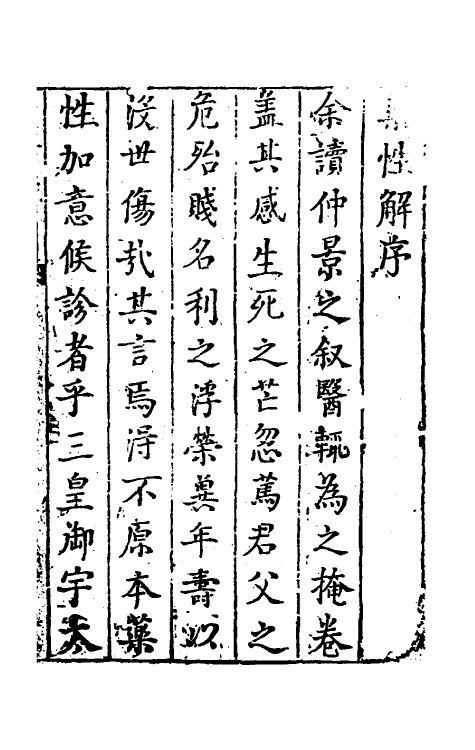 藥性解序
余讀仲景之叙醫輙為之掩卷
盖其感生死之芒忽篤君父之
危殆賤名利之浮榮冀年壽以
沒世傷哉其言焉得不原本藥
性加意候診者乎三皇御宇太